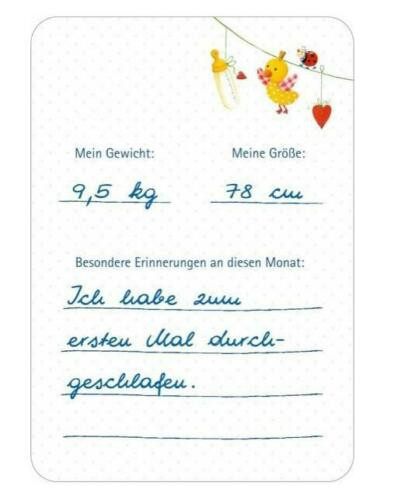 Mein Gewicht: Meine Größe:
9,5 kg 78 cm
Besondere Erinnerungen an diesen Monat:
Ich habe zum
ersten Mal durch-
geschlafen.